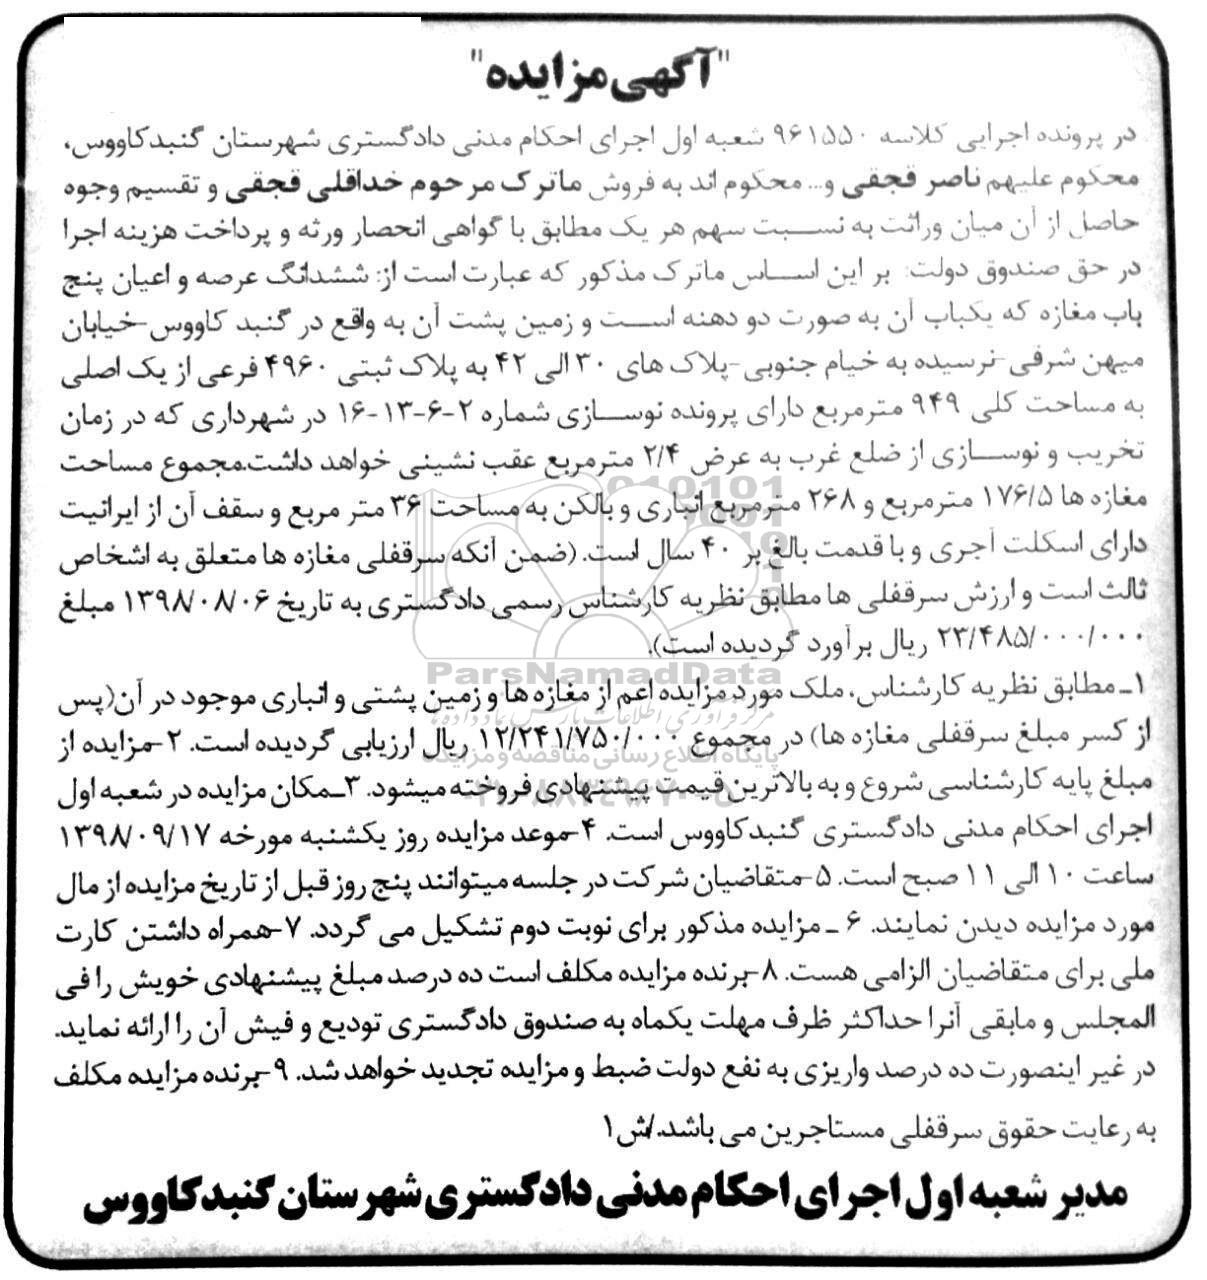 "آگهی مزایده"
در پرونده اجرایی کلاسه ۹۶۱۵۵۰ شعبه اول اجرای احکام مدنی دادگستری شهرستان گنبدکاووس،
محکوم علیهم ناصر قجقی و... محکوم اند به فروش ماترک مرحوم خداقلی قجقی و تقسیم وجوه
حاصل از آن میان وراثت به نسبت سهم هر یک مطابق با گواهی انحصار ورثه و پرداخت هزینه اجرا
در حق صندوق دولت: بر این اساس ماترک مذکور که عبارت است از: ششدانگ عرصه و اعیان پنج
باب مغازه که یکباب آن به صورت دو دهنه است و زمین پشت آن به واقع در گنبد کاووس-خیابان
میهن شرقی-نرسیده به خیام جنوبی-پلاک های ۳۰ الی ۴۲ به پلاک ثبتی ۴۹۶۰ فرعی از یک اصلی
به مساحت کلی ۹۴۹ مترمربع دارای پرونده نوسازی شماره ۲-۶-۱۳-۱۶ در شهرداری که در زمان
تخریب و نوسازی از ضلع غرب به عرض ۲/۴ مترمربع عقب نشینی خواهد داشت.مجموع مساحت
مغازه ها ۱۷۶/۵ مترمربع و ۲۶۸ مترمربع انباری و بالکن به مساحت ۳۶ متر مربع و سقف آن از ایرانیت
دارای اسکلت آجری و با قدمت بالغ بر ۴۰ سال است. (ضمن آنکه سرقفلی مغازه ها متعلق به اشخاص
ثالث است و ارزش سرقفلی ها مطابق نظریه کارشناس رسمی دادگستری به تاریخ ۱۳۹۸/۰۸/۰۶ مبلغ
۲۳/۴۸۵/۰۰۰/۰۰۰ ریال برآورد گردیده است).
۱ـ مطابق نظریه کارشناس، ملک مورد مزایده اعم از مغازه ها و زمین پشتی و انباری موجود در آن(پس
از کسر مبلغ سرقفلی مغازه ها) در مجموع ۱۲/۲۴۱/۷۵۰/۰۰۰ ریال ارزیابی گردیده است. ۲-مزایده از
مبلغ پایه کارشناسی شروع و به بالاترین قیمت پیشنهادی فروخته میشود. ۳ـمکان مزایده در شعبه اول
اجرای احکام مدنی دادگستری گنبدکاووس است. ۴-موعد مزایده روز یکشنبه مورخه ۱۳۹۸/۰۹/۱۷
ساعت ۱۰ الی ۱۱ صبح است. ۵-متقاضیان شرکت در جلسه میتوانند پنج روز قبل از تاریخ مزایده از مال
مورد مزایده دیدن نمایند. ۶ ـ مزایده مذکور برای نوبت دوم تشکیل می گردد. ۷-همراه داشتن کارت
ملی برای متقاضیان الزامی هست. ۸-برنده مزایده مکلف است ده درصد مبلغ پیشنهادی خویش را فی
المجلس و مابقی آنرا حداکثر ظرف مهلت یکماه به صندوق دادگستری تودیع و فیش آن را ارائه نماید.
در غیر اینصورت ده درصد واریزی به نفع دولت ضبط و مزایده تجدید خواهد شد. ۹-برنده مزایده مکلف
به رعایت حقوق سرقفلی مستاجرین می باشد./ش۱
مدیر شعبه اول اجرای احکام مدنی دادگستری شهرستان گنبدکاووس
ParsNamadData
پایگاه اطلاع رسانی مناقصه و مزایده